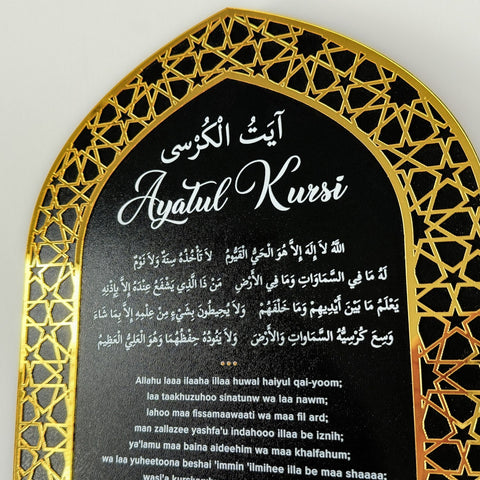 آيَتُ الْكُرْسى
Ayatul Kursi
اللَّهُ لاَ إِلَهَ إِلاَّ هُوَ الْحَيُّ الْقَيُّومُ لاَ تَأْخُذُهُ سِنَةٌ وَلاَ نَوْمٌ
لَهُ مَا فِي السَّمَاوَاتِ وَمَا فِي الأَرْضِ مَنْ ذَا الَّذِي يَشْفَعُ عِنْدَهُ إِلاَّ بِإِذْنِهِ
يَعْلَمُ مَا بَيْنَ أَيْدِيهِمْ وَمَا خَلْفَهُمْ وَلاَ يُحِيطُونَ بِشَيْءٍ مِنْ عِلْمِهِ إِلاَّ بِمَا شَاءَ
وَسِعَ كُرْسِيُّهُ السَّمَاوَاتِ وَالأَرْضَ وَلاَ يَئُودُهُ حِفْظُهُمَا وَهُوَ الْعَلِيُّ الْعَظِيمُ
Allahu laaa ilaaha illaa huwal haiyul qai-yoom;
laa taakhuzuhoo sinatunw wa laa nawm;
lahoo maa fissamawaati wa maa fil ard;
man zallazee yashfa'u indahooo illaa be iznih;
ya'lamu maa baina aideehim wa maa khalfahum;
wa laa yuheetoona beshai 'immin 'ilmihee illa be maa shaaaa;